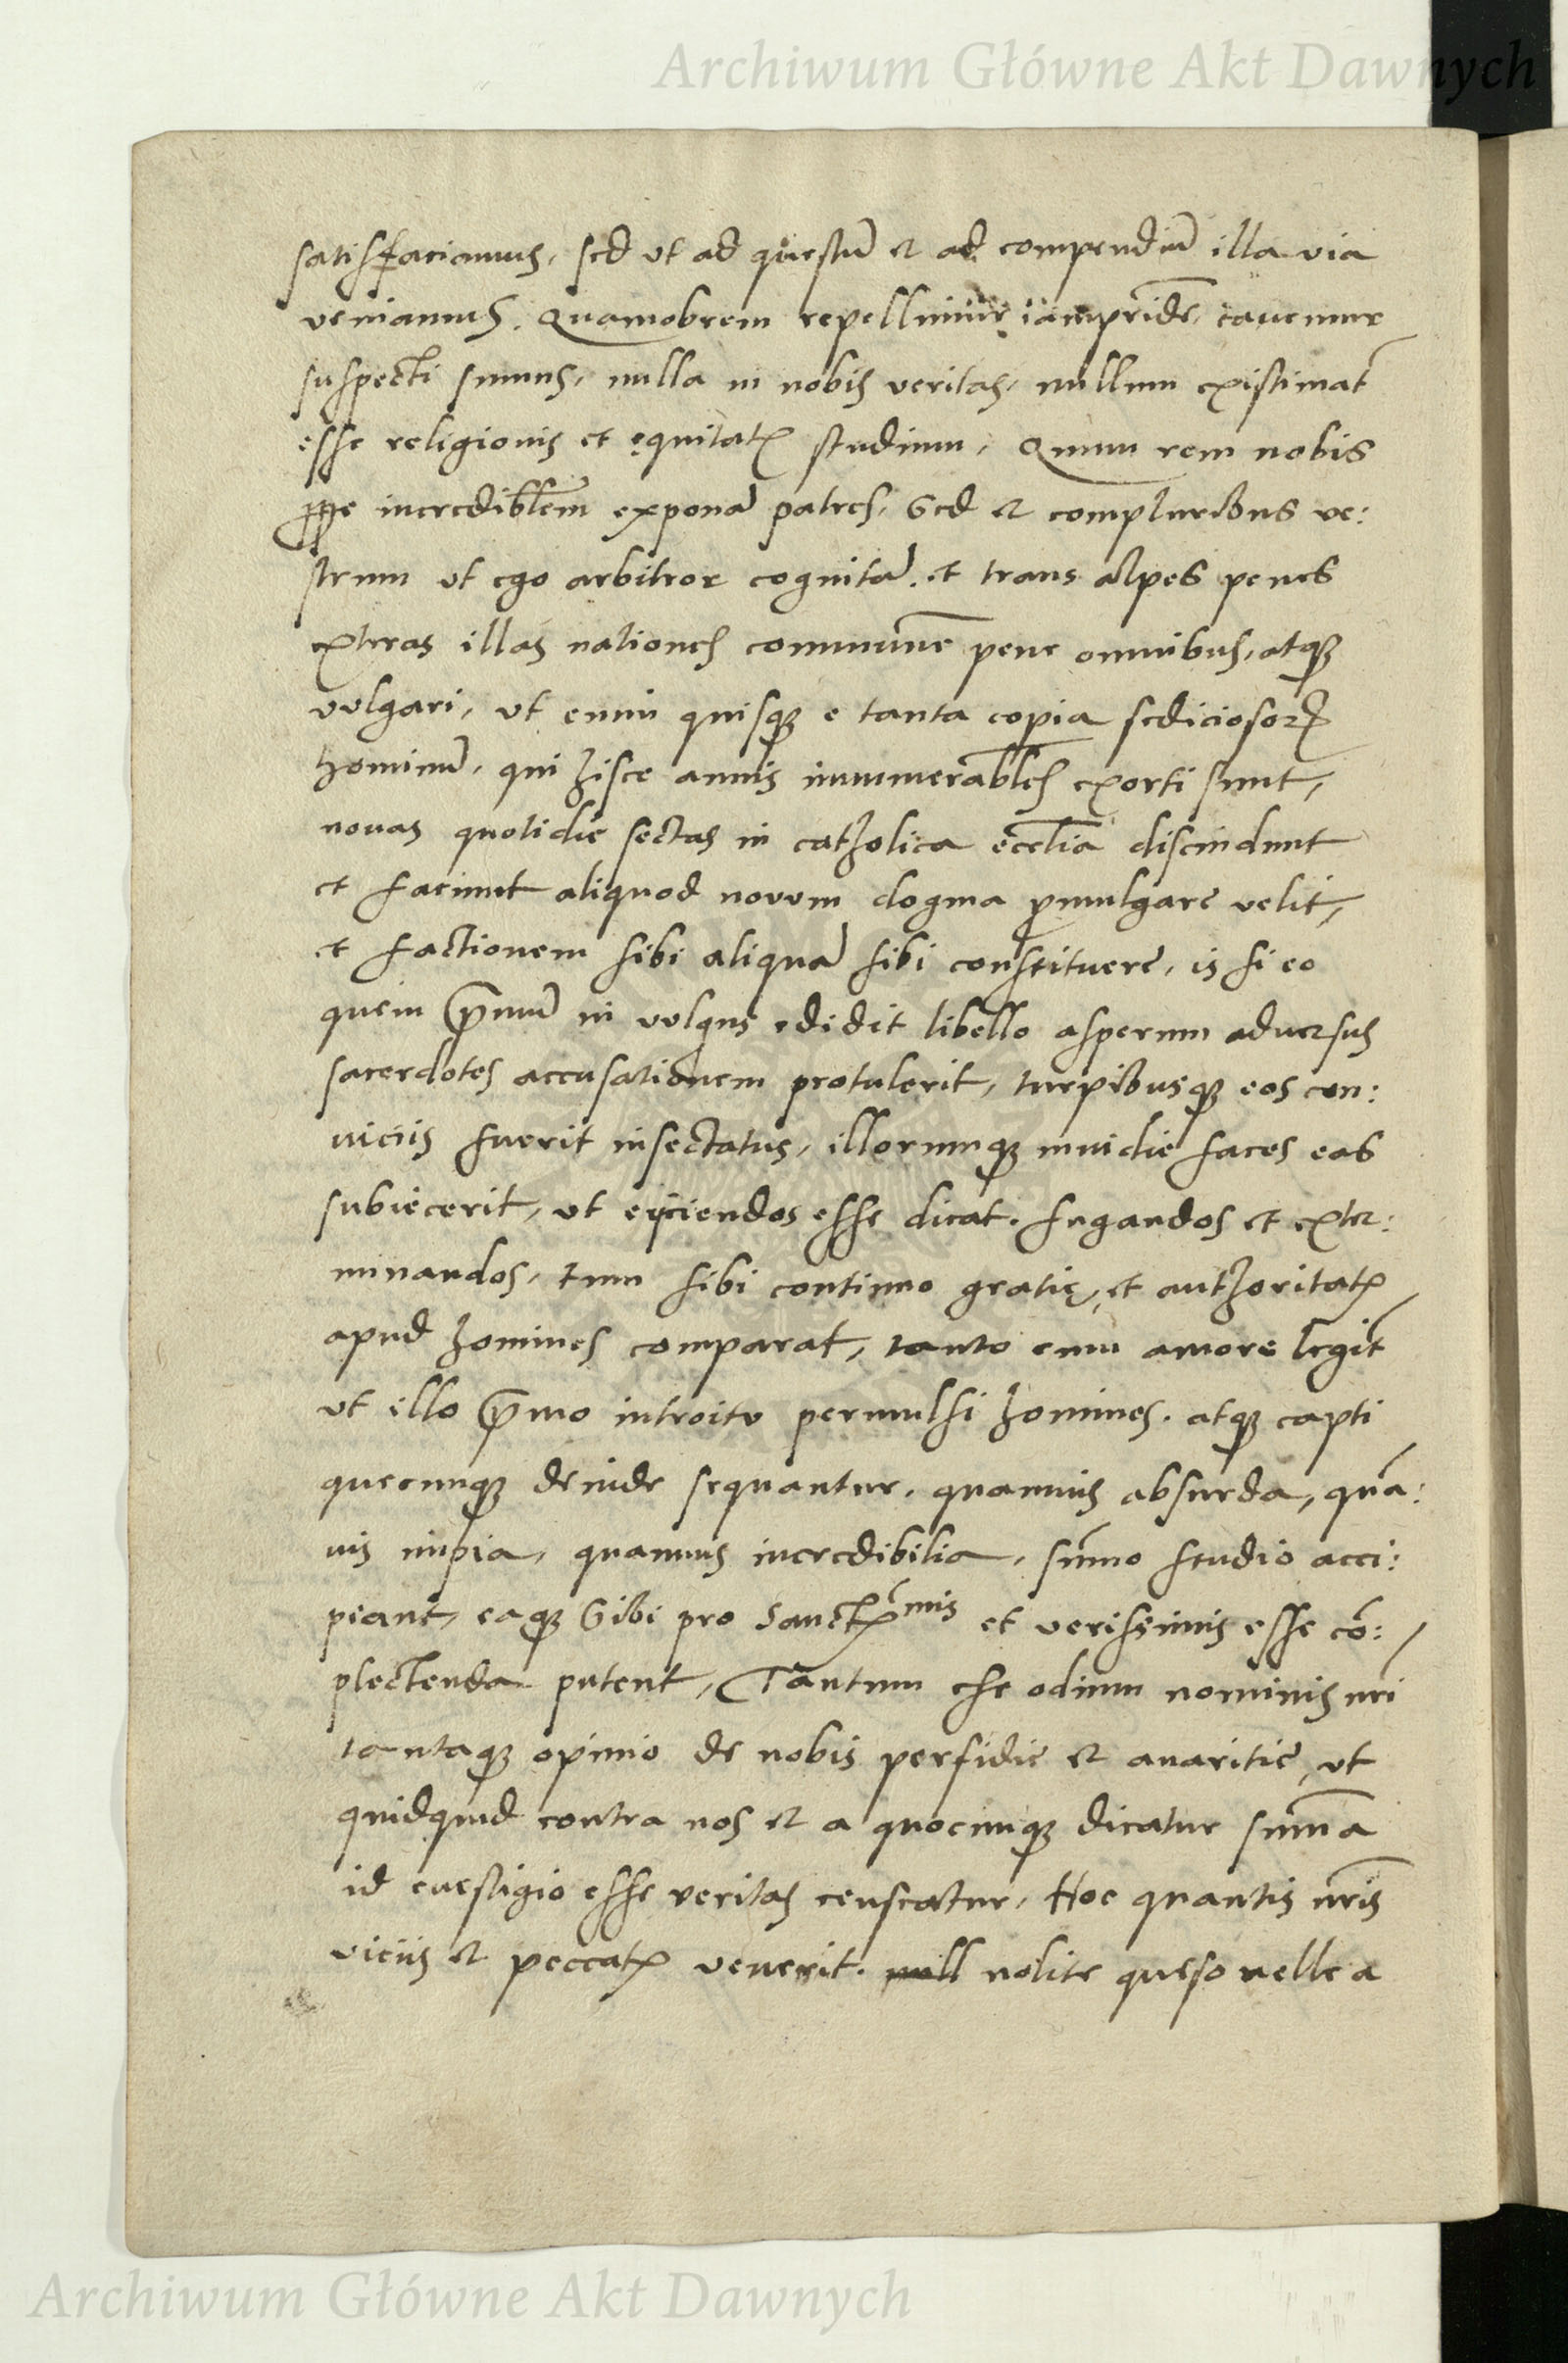 Archiwum Główne Akt Dawnych
satisfaciamus, sed ut ad questū et ad compendiū illa via
veniamus. Quamobrem repellimur iampridē, cavemur
suspecti sumus, nulla in nobis veritas, nullum existimat̄
esse religionis et ęquitatꝭ studium, Quum rem nobis
ꝓpe incrediblēm exponā patres, Sed et compluribus ve:
strum ut ego arbitror cognitā. et trans alpes penes
exteras illas nationes communē pene omnibus, atqꝫ
vulgari, ut enim quisqꝫ e tanta copia sediciosorꝫ
hominū, qui hisce annis innumerabl̄es exorti sunt,
novas quotidie sectas in catholica eccl̄ia discindunt
et faciunt aliquod novum dogma ꝓmulgare velit,
et factionem sibi aliquā sibi constituere, is si eo
quem p̄mū in vulgus edidit libello asperum adversus
sacerdotes accusationem protulerit, turpibusqꝫ eos con:
viciis fuerit insectatus, illorumqꝫ invidie faces eas
subiecerit, ut eijciendos esse dicat. fugandos et exter:
minandos, tum sibi continuo gratię, et authoritatꝭ
apud homines comparat, tanto enim amore legit̄
ut illo p̄mo introitu permulsi homines. atqꝫ capti
quecunqꝫ deinde sequantur, quamvis absurda, quā:
vis impia, quamvis incredibilia, sūmo studio acci:
piant, eaqꝫ Sibi pro Sanctꝭmis et verissimis esse cō:
plectenda putent, Tantum esse odium nominis nr̄i
tantaqꝫ opinio de nobis perfidie et avaritie, ut
quidquid contra nos et a quocunqꝫ dicatur sum̄a
id evestigio esse veritas censeatur, Hoc quantis nr̄is
viciis et peccatꝭ venerit. null nolite queso velle a
Archiwum Główne Akt Dawnych